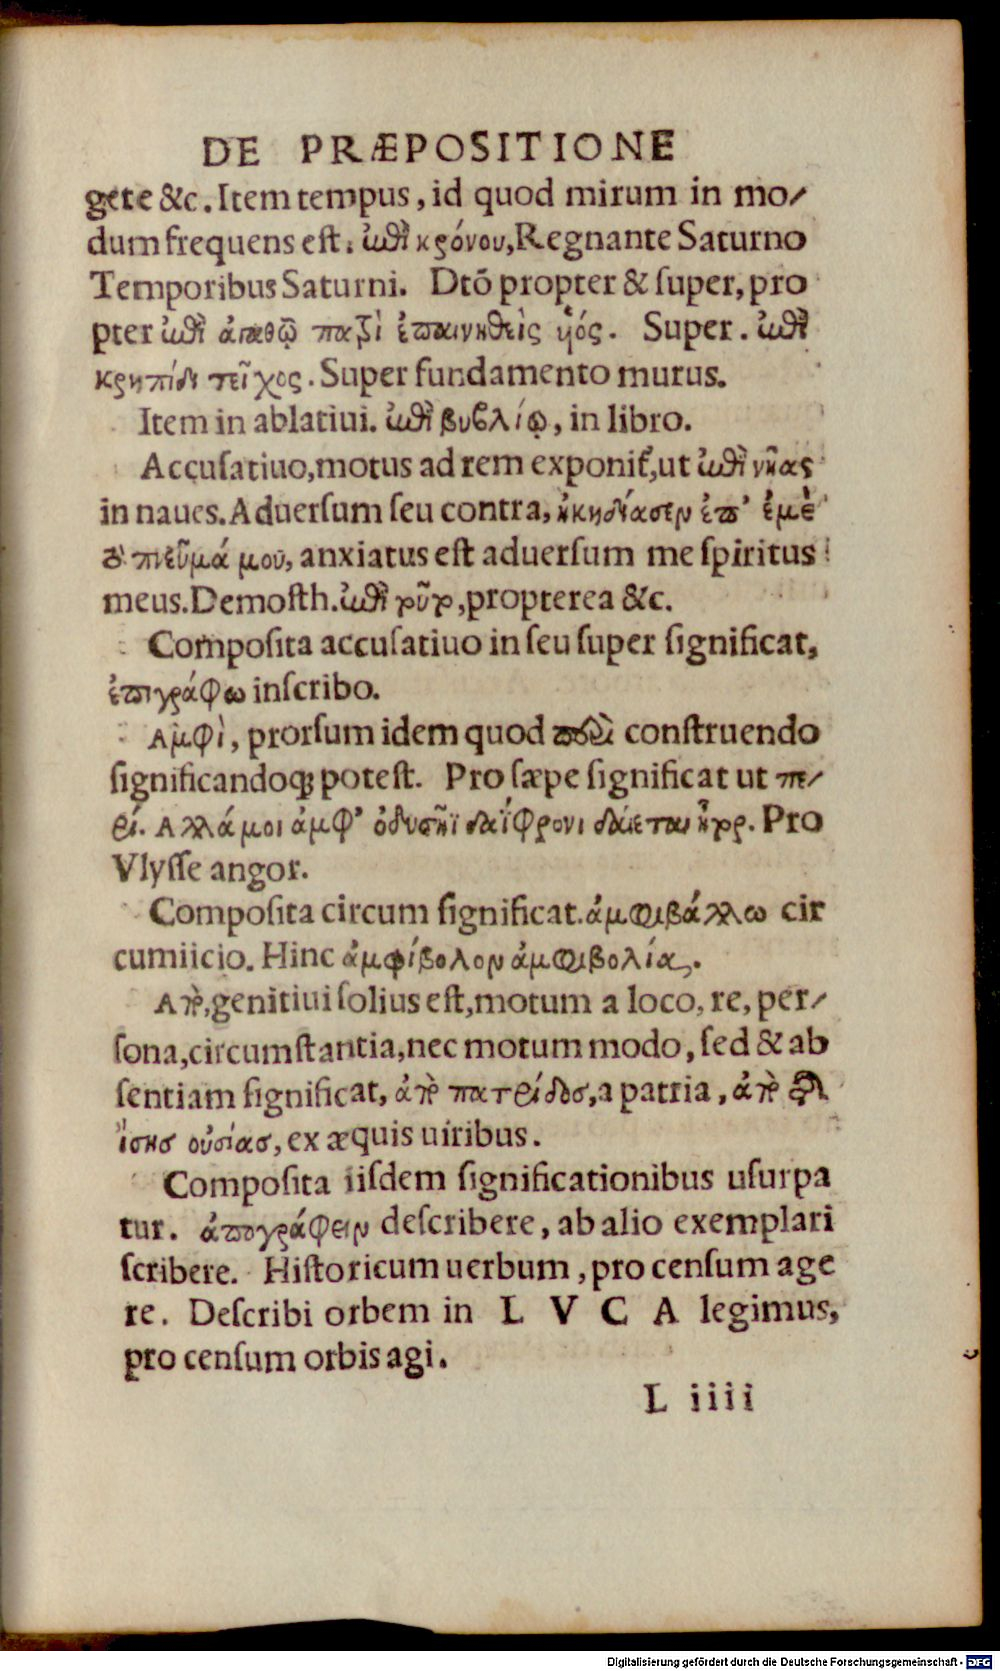 DE PRÆPOSITIONE
gete &c. Item tempus, id quod mirum in mo/
dum frequens est. ἐπὶ κρόνου, Regnante Saturno
Temporibus Saturni. Dtō propter & super, pro
pter ἐπὶ ἀγαθῷ πατρὶ ἐπαινηθεὶς υἱός. Super. ἐπὶ
κρηπίδι τεῖχος. Super fundamento murus.
Item in ablatiui. ἐπὶ βυβλίῳ, in libro.
Accusatiuo, motus ad rem exponit, ut ἐπὶ νῆας
in naues. Aduersum seu contra, ἠκηδίασεν ἐπ' ἐμὲ
τὸ πνεῦμά μου, anxiatus est aduersum me spiritus
meus. Demosth. ἐπὶ νῦν, propterea &c.
Composita accusatiuo in seu super significat,
ἐπιγράφω inscribo.
Αμφὶ, prorsum idem quod περὶ construendo
significandoq; potest. Pro sæpe significat ut πε/
ρί. Αλλά μοι ἀμφ' ὀδυσῆϊ δαΐφρονι δαίεται ἦτορ. Pro
Vlysse angor.
Composita circum significat. ἀμφιβάλλω cir
cumiicio. Hinc ἀμφίβολον ἀμφιβολία.
Απὸ, genitiui solius est, motum a loco, re, per/
sona, circumstantia, nec motum modo, sed & ab
sentiam significat, ἀπὸ πατρίδος, a patria, ἀπὸ τῆς
ἴσης οὐσίας, ex æquis uiribus.
Composita iisdem significationibus usurpa
tur. ἀπογράφειν describere, ab alio exemplari
scribere. Historicum uerbum, pro censum age
re. Describi orbem in L V C A legimus,
pro censum orbis agi.
L iiii
Digitalisierung gefördert durch die Deutsche Forschungsgemeinschaft - DFG